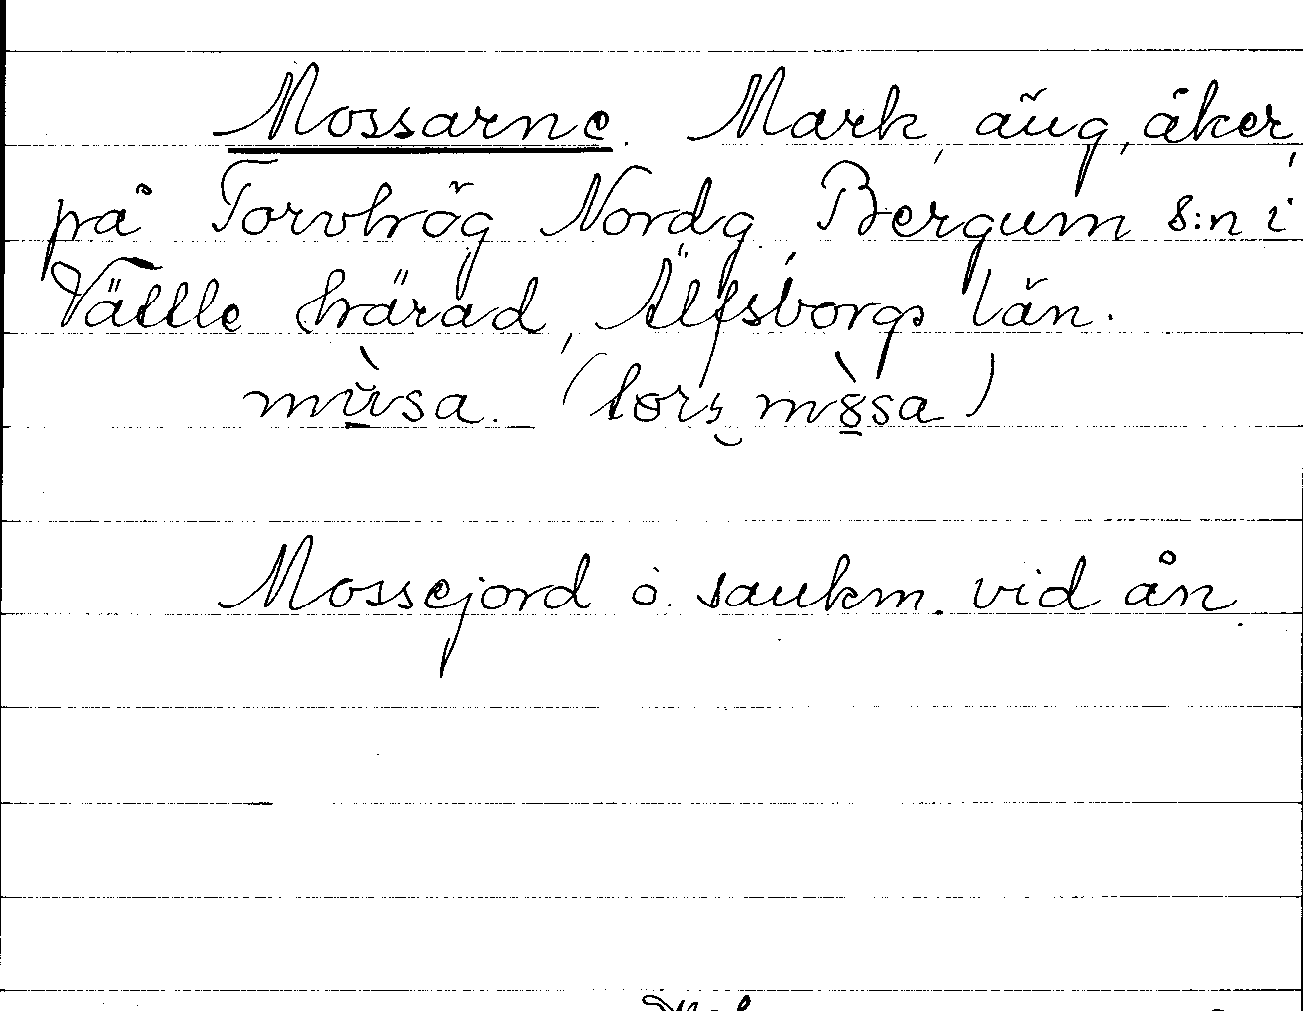 Mossarne. Mark, äng, åker,
på Torvhög Nordg. Bergum s:n i
Vättle härad, Älfsborgs län.
mùsa. (lors m8̀sa)
Mossejord o. sankm. vid ån.